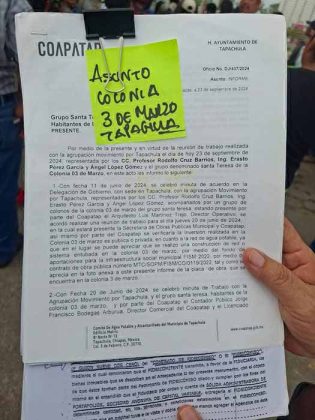 COAPATAP
H. AYUNTAMIENTO DE
TAPACHULA
Oficio No. DJ/437/2024
Asunto: INFORME.
a 23 de septiembre de 2024
ASUNTO
COLONIA
3 DE MARZO
TAPACHULA
Grupo Santa
Habitantes de
PRESENTE.
Por medio de la presente y en virtud de la reunión de trabajo realizada
con la agrupación movimiento por Tapachula el día de hoy 23 de septiembre de
2024, representada por los CC. Profesor Rodolfo Cruz Barrios, Ing. Erasto
Pérez García y Ángel López Gómez y el grupo denominado santa Teresa de la
Colonia 03 de Marzo, en este acto les informo lo siguiente:
1.-Con fecha 11 de junio 2024, se celebró minuta de acuerdo en la
Delegación de Gobierno, con sede en Tapachula, con la agrupación Movimiento
por Tapachula, representada por los CC. Profesor Rodolfo Cruz Barrios, Ing.
Erasto Pérez García y Ángel López Gómez, acompañados por un grupo de
colonos de la colonia 03 de marzo del grupo santa teresa, estando presente por
parte del Coapatap el Arquitecto Luis Martínez Trejo, Director Operativo, se
acordó realizar una reunión de trabajo para el día jueves 20 de junio de 2024,
en la cual estará presente la Secretaria de Obras Públicas Municipal y Coapatap,
así mismo por parte del Coapatap se verificaría la situación en la colonia
03 de Marzo es pública o privada, en cuanto a la red de agua potable, ya
que en el lugar se puede apreciar que se realizó una construcción de un
sistema entubada en la colonia 03 de marzo, por medio del fondo de
aportaciones para la infraestructura social municipal FISM 2022, por medio de
contrato de obra pública número
aprecia en la foto anexo a este presente informe de la placa de obra, que se
encuentra en la colonia 3 de marzo.
2.-Con Fecha 20 de junio 2024, se celebró minuta de Trabajo con la
Agrupación Movimiento por Tapachula, y el grupo santa Teresa, habitantes de la
colonia 03 de marzo, y por parte del Coapatap el Contador Público Jorge
Francisco Bodegas Arburua, Director Comercial del Coapatap y el Licenciado
Comité De Agua Potable y Alcantarillado del Municipio de Tapachula
Edificio Marín
8ª Norte Nº 13
Tapachula, Chiapas, México
Col. 5 de Febrero, C.P. 30710.
www.coapatap.gob.mx